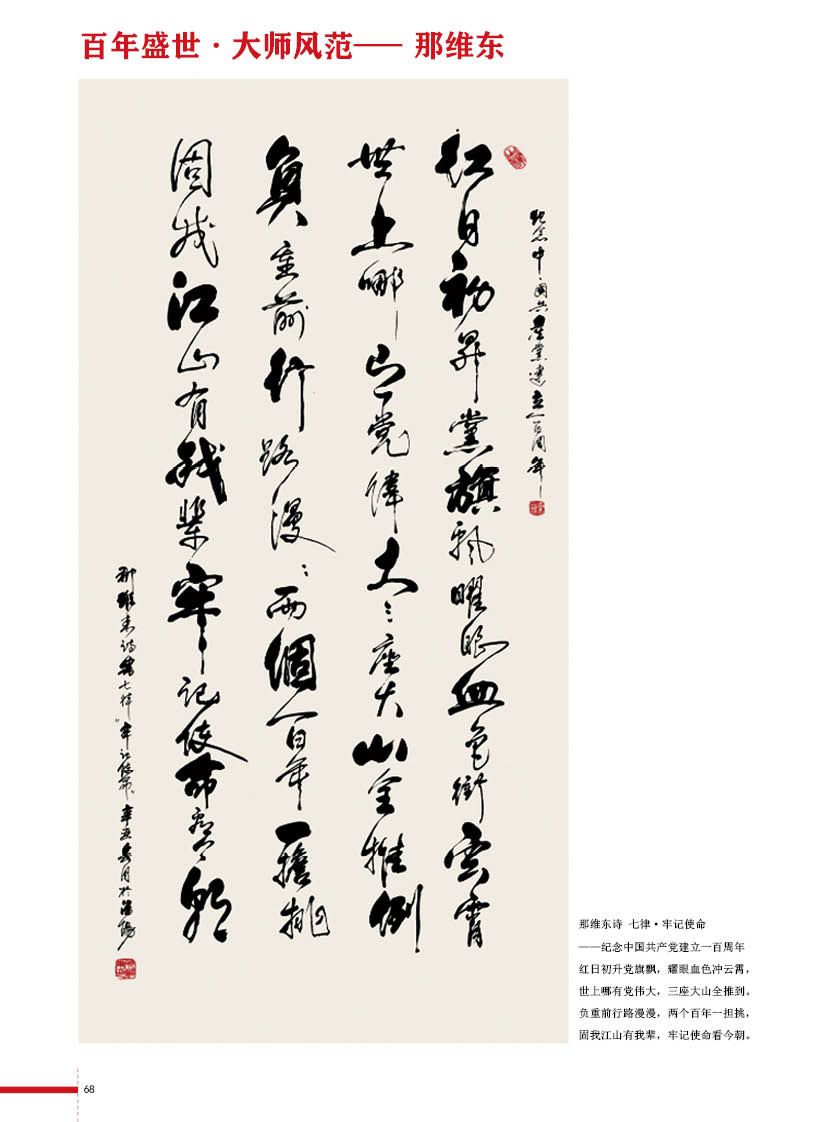 百年盛世·大师风范—— 那维东
纪念中国共产党建立一百周年
红日初昇黨旗飘曜眼血色衝雲霄
世上哪有党偉大三座大山全推倒
負重前行路漫漫两個百年一擔挑
固我江山有我辈牢记使命看今朝
那维东诗书七律"牢记使命"辛丑
那维东诗 七律·牢记使命
——纪念中国共产党建立一百周年
红日初升党旗飘，耀眼血色冲云霄，
世上哪有党伟大，三座大山全推到。
负重前行路漫漫，两个百年一担挑，
固我江山有我辈，牢记使命看今朝。
68